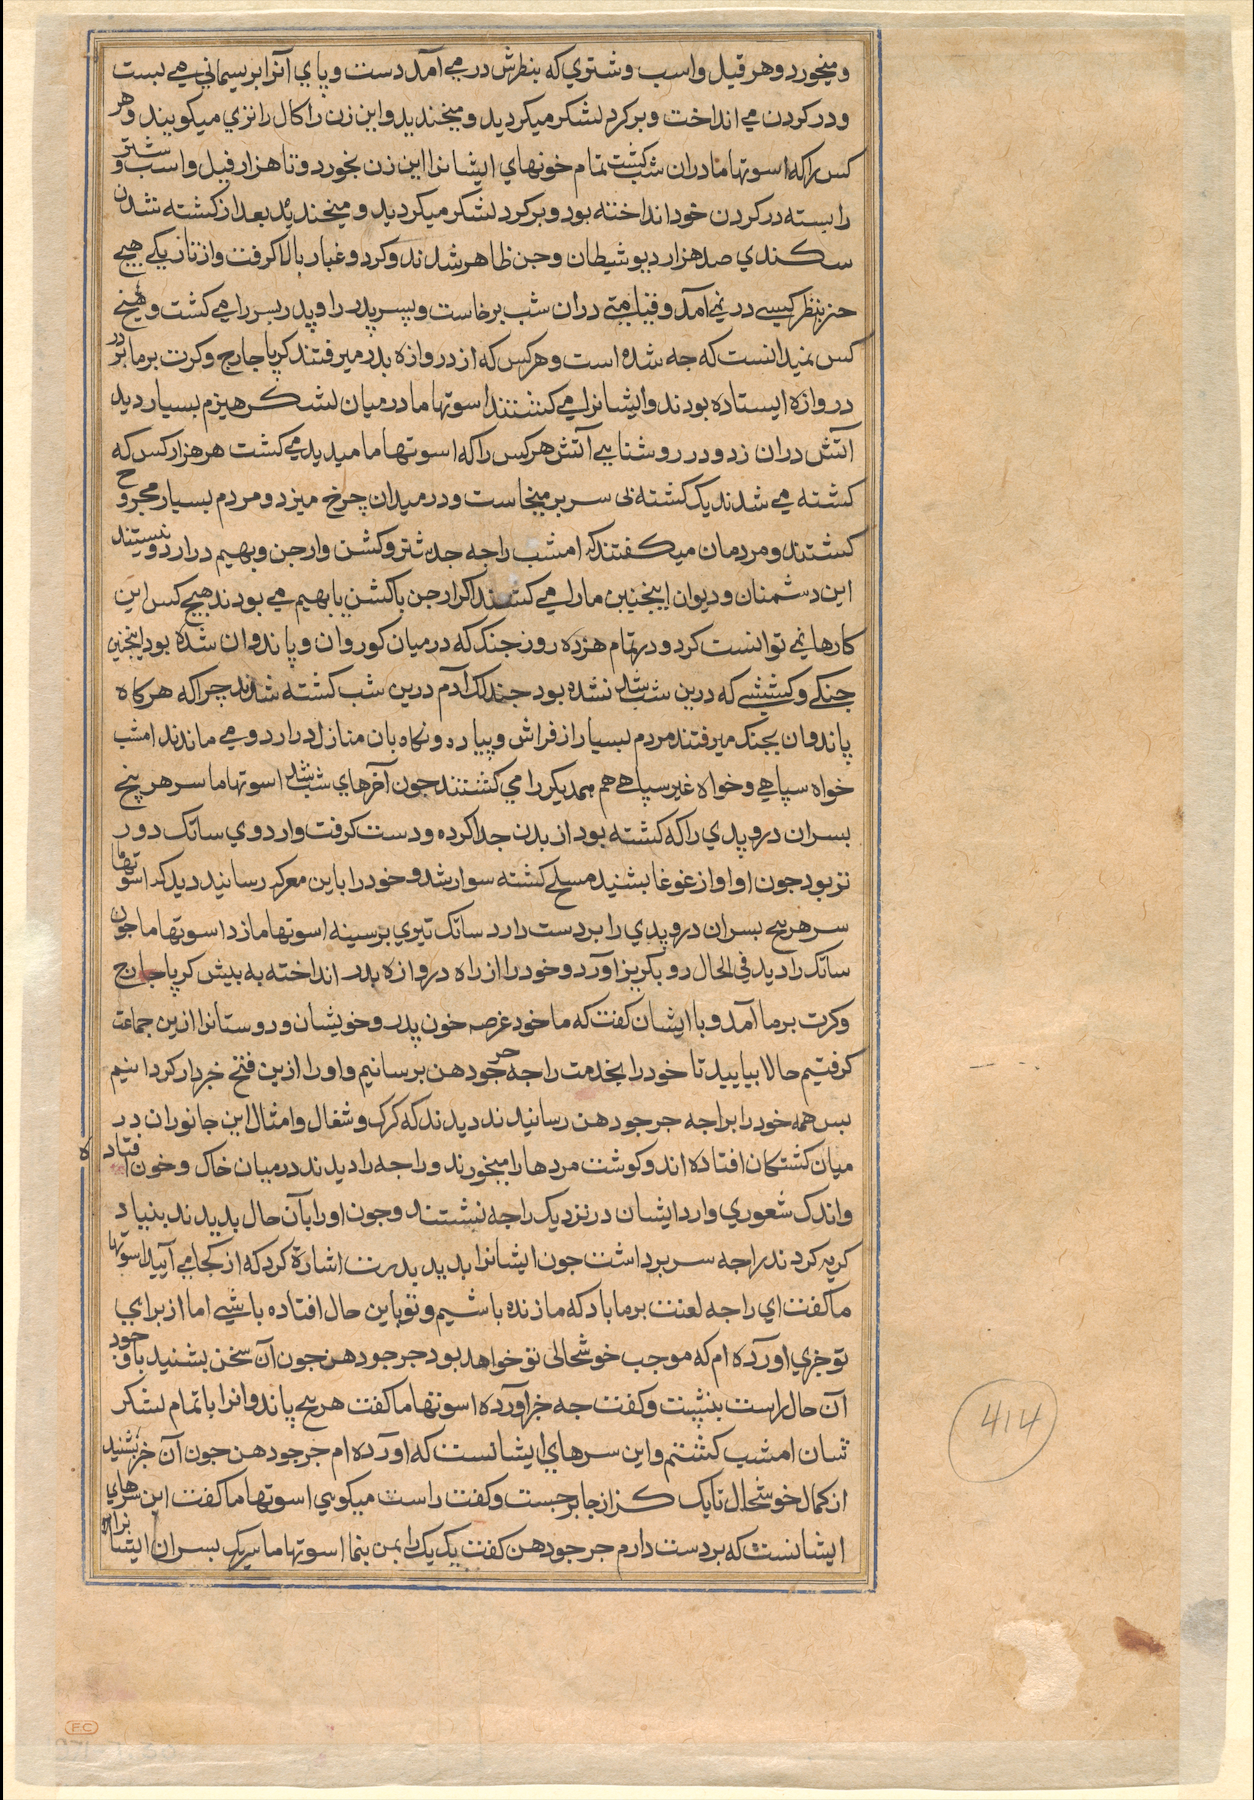 و میخورد و هر فیل و اسب و شتری که بنظرش در می آمد دست و پای آنرا بریسمانی می بست
و در کردن می انداخت و برکرد لشکر میکردید و میخندید و این زن را کال راتری میکویند و هر
کس را که اسوتهاما دران شب کشت تمام خونهای ایشانرا این زن بخورد و تا هزار فیل و اسب و شتر
را بسته در کردن خود انداخته بود و برکرد لشکر میکردید و میخندید بعد از کشته شدن
سکندی صد هزار دیو شیطان و جن ظاهر شدند و کرد و غبار بالا کرفت و از تاریکی هیچ
چیز بنظر کسی در نمی آمد و قیامتی دران شب برخاست و پسر پدر را و پدر پسر را می کشت و هیچ
کس نمیدانست که چه شده است و هرکس که از دروازه بدر میرفتند کرپاچارج و کرت برما بر در
دروازه ایستاده بودند و ایشانرا می کشتند اسوتهاما در میان لشکر هیزم بسیار دید
آتش دران زد و در روشنایی آتش هرکس را که اسوتهاما میدید می کشت هر هزار کس که
کشته می شدند یک کشته بی سر بر میخاست و در میدان چرخ میزد و مردم بسیار مجروح
کشتند و مردمان میکفتند که امشب راجه جدشتر و کشن و ارجن و بهیم در اردو نیستند
این دشمنان و دیوان اینچنین مارا می کشند اکر ارجن یا کشن یا بهیم می بودند هیچ کس این
کارها نمی توانست کرد و در تمام هژده روز جنک که در میان کوروان و پاندوان شده بود اینچنین
جنکی و کششی که درین شب شد نشده بود چند لک آدم درین شب کشته شدند چرا که هرکاه
پاندوان بجنک میرفتند مردم بسیار از فراش و پیاده و نکاه بان منازل در اردو می ماندند امشب
خواه سپاهی و خواه غیر سپاهی هم همدیکر را می کشتند چون آخرهای شب شد اسوتهاما سر هر پنج
پسران دروپدی را که کشته بود از بدن جدا کرده و دست کرفت و اردوی ساتک دور
تر بود چون او آواز غوغا بشنید مسلح کشته سوار شد و خود را باین معرکه رسانید دید که اسوتهاما
سر هر پنج پسران دروپدی را بر دست دارد ساتک تیری بر سینه اسوتهاما زد اسوتهاما چون
ساتک را دید فی الحال رو بکریز آورد و خود را از راه دروازه بدر انداخته به پیش کرپاچارج
و کرت برما آمد و با ایشان کفت که ما خود عرصه خون پدر و خویشان و دوستانرا ازین جماعت
کرفتیم حالا بیایید تا خود را بخدمت راجه جرجودهن برسانیم و او را ازین فتح خبردار کردانیم
پس همه خود را براجه جرجودهن رسانیدند دیدند که کرک و شغال و امثال این جانوران در
میان کشتکان افتاده اند و کوشت مردها را میخورند و راجه را دیدند در میان خاک و خون افتاده
و اندک شعوری دارد ایشان در نزدیک راجه نشستند و چون او را بآن حال بدیدند بنیاد
کریه کردند راجه سر برداشت چون ایشانرا بدید بدست اشارة کرد که از کجا می آیید اسوتها
ما کفت ای راجه لعنت بر ما باد که ما زنده باشیم و تو باین حال افتاده باشی اما از برای
تو خبری آورده ام که موجب خوشحالی تو خواهد بود جرجودهن چون آن سخن بشنید با وجود
آن حال راست بنشست و کفت چه خبر آورده اسوتهاما کفت هر پنج پاندوانرا با تمام لشکر
شان امشب کشتم و این سرهای ایشانست که آورده ام جرجودهن چون آن خبر بشنید
از کمال خوشحالی تا یک کز از جا برجست و کفت راست میکویی اسوتهاما کفت این سرهای
ایشانست که بر دست دارم جرجودهن کفت یک یک را بمن بنما اسوتهاما سر یک پسران ایشانرا
414
F·C